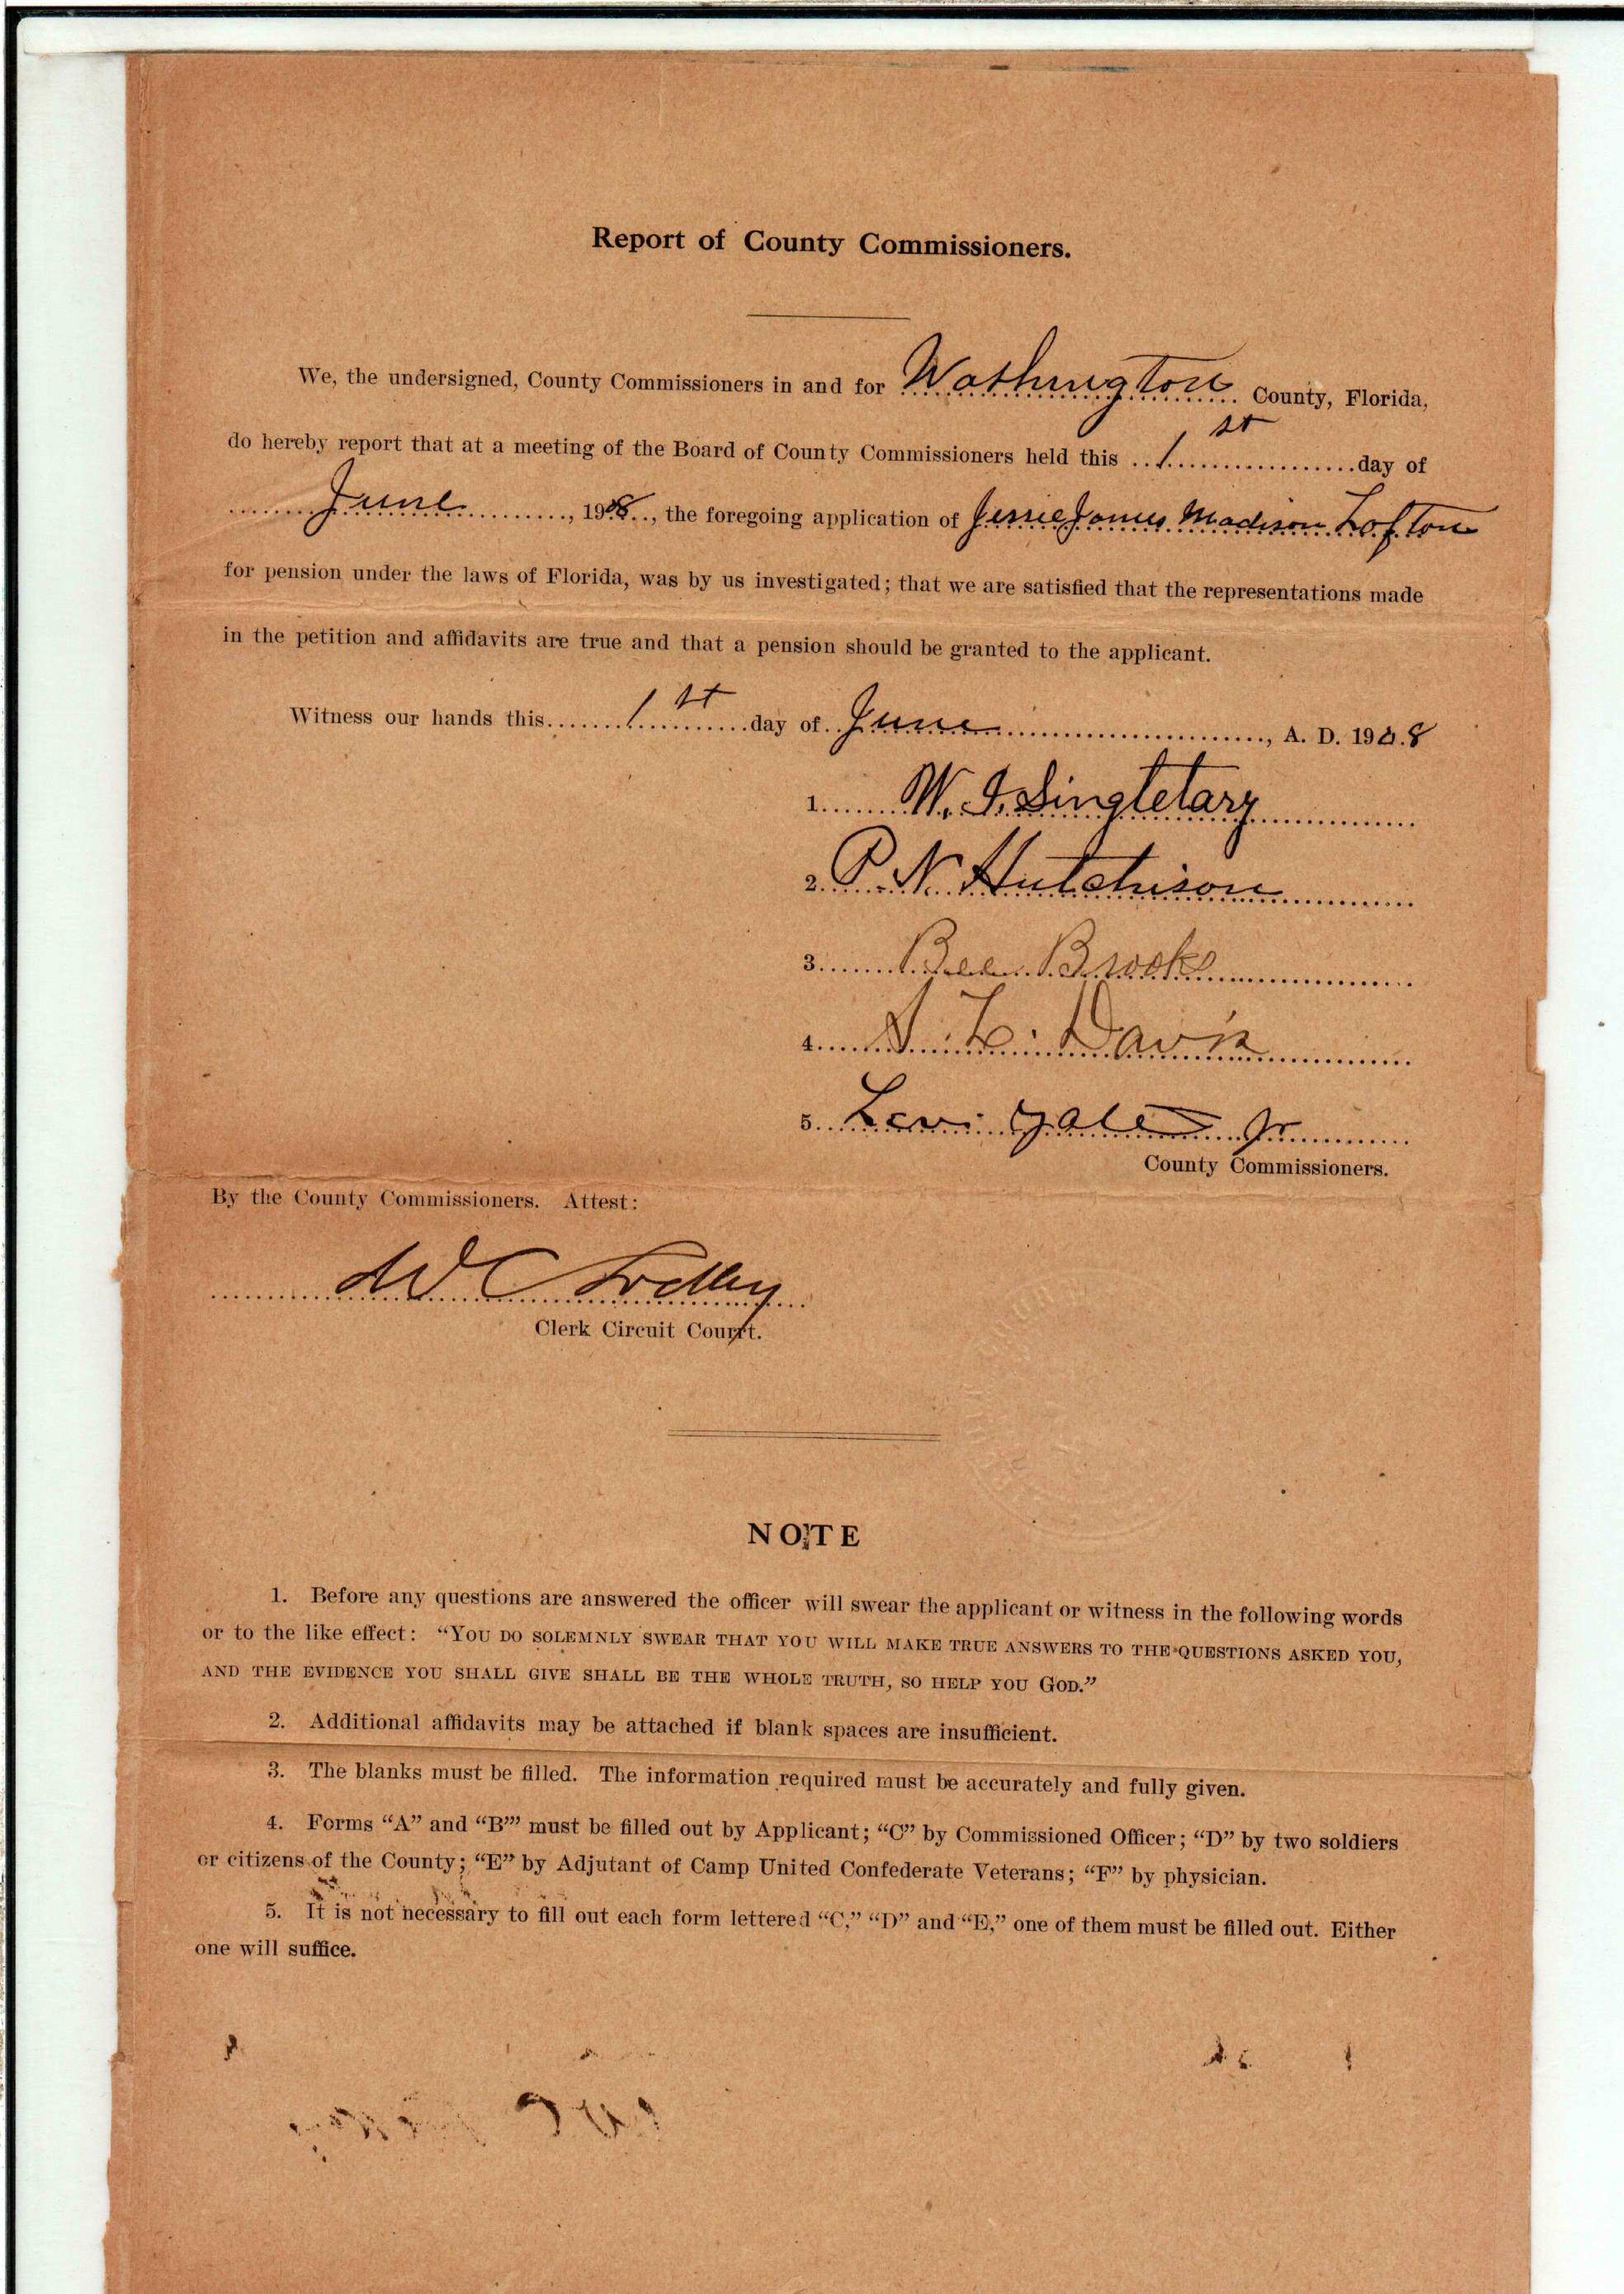 Report of County Commissioners.
We, the undersigned, County Commissioners in and for Washington County, Florida,
do hereby report that at a meeting of the Board of County Commissioners held this 1st day of
June, 1908, the foregoing application of Jessie James Madison Lofton
for pension under the laws of Florida, was by us investigated; that we are satisfied that the representations made
in the petition and affidavits are true and that a pension should be granted to the applicant.
Witness our hands this 1st day of June, A. D. 1908
1. W. J. Singletary
2. P. N. Hutchison
3. Bee Brooks
4. Davis
5. Levi Jr
County Commissioners.
By the County Commissioners. Attest:
W C Lockey
Clerk Circuit Courrt.
NOTE
1. Before any questions are answered the officer will swear the applicant or witness in the following words
or to the like effect: “YOU DO SOLEMNLY SWEAR THAT YOU WILL MAKE TRUE ANSWERS TO THE QUESTIONS ASKED YOU,
AND THE EVIDENCE YOU SHALL GIVE SHALL BE THE WHOLE TRUTH, SO HELP YOU GOD.”
2. Additional affidavits may be attached if blank spaces are insufficient.
3. The blanks must be filled. The information required must be accurately and fully given.
4. Forms “A” and “B”’ must be filled out by Applicant; “C” by Commissioned Officer; “D” by two soldiers
or citizens of the County; “E” by Adjutant of Camp United Confederate Veterans; “F” by physician.
5. It is not necessary to fill out each form lettered “C,” “D” and “E,” one of them must be filled out. Either
one will suffice.